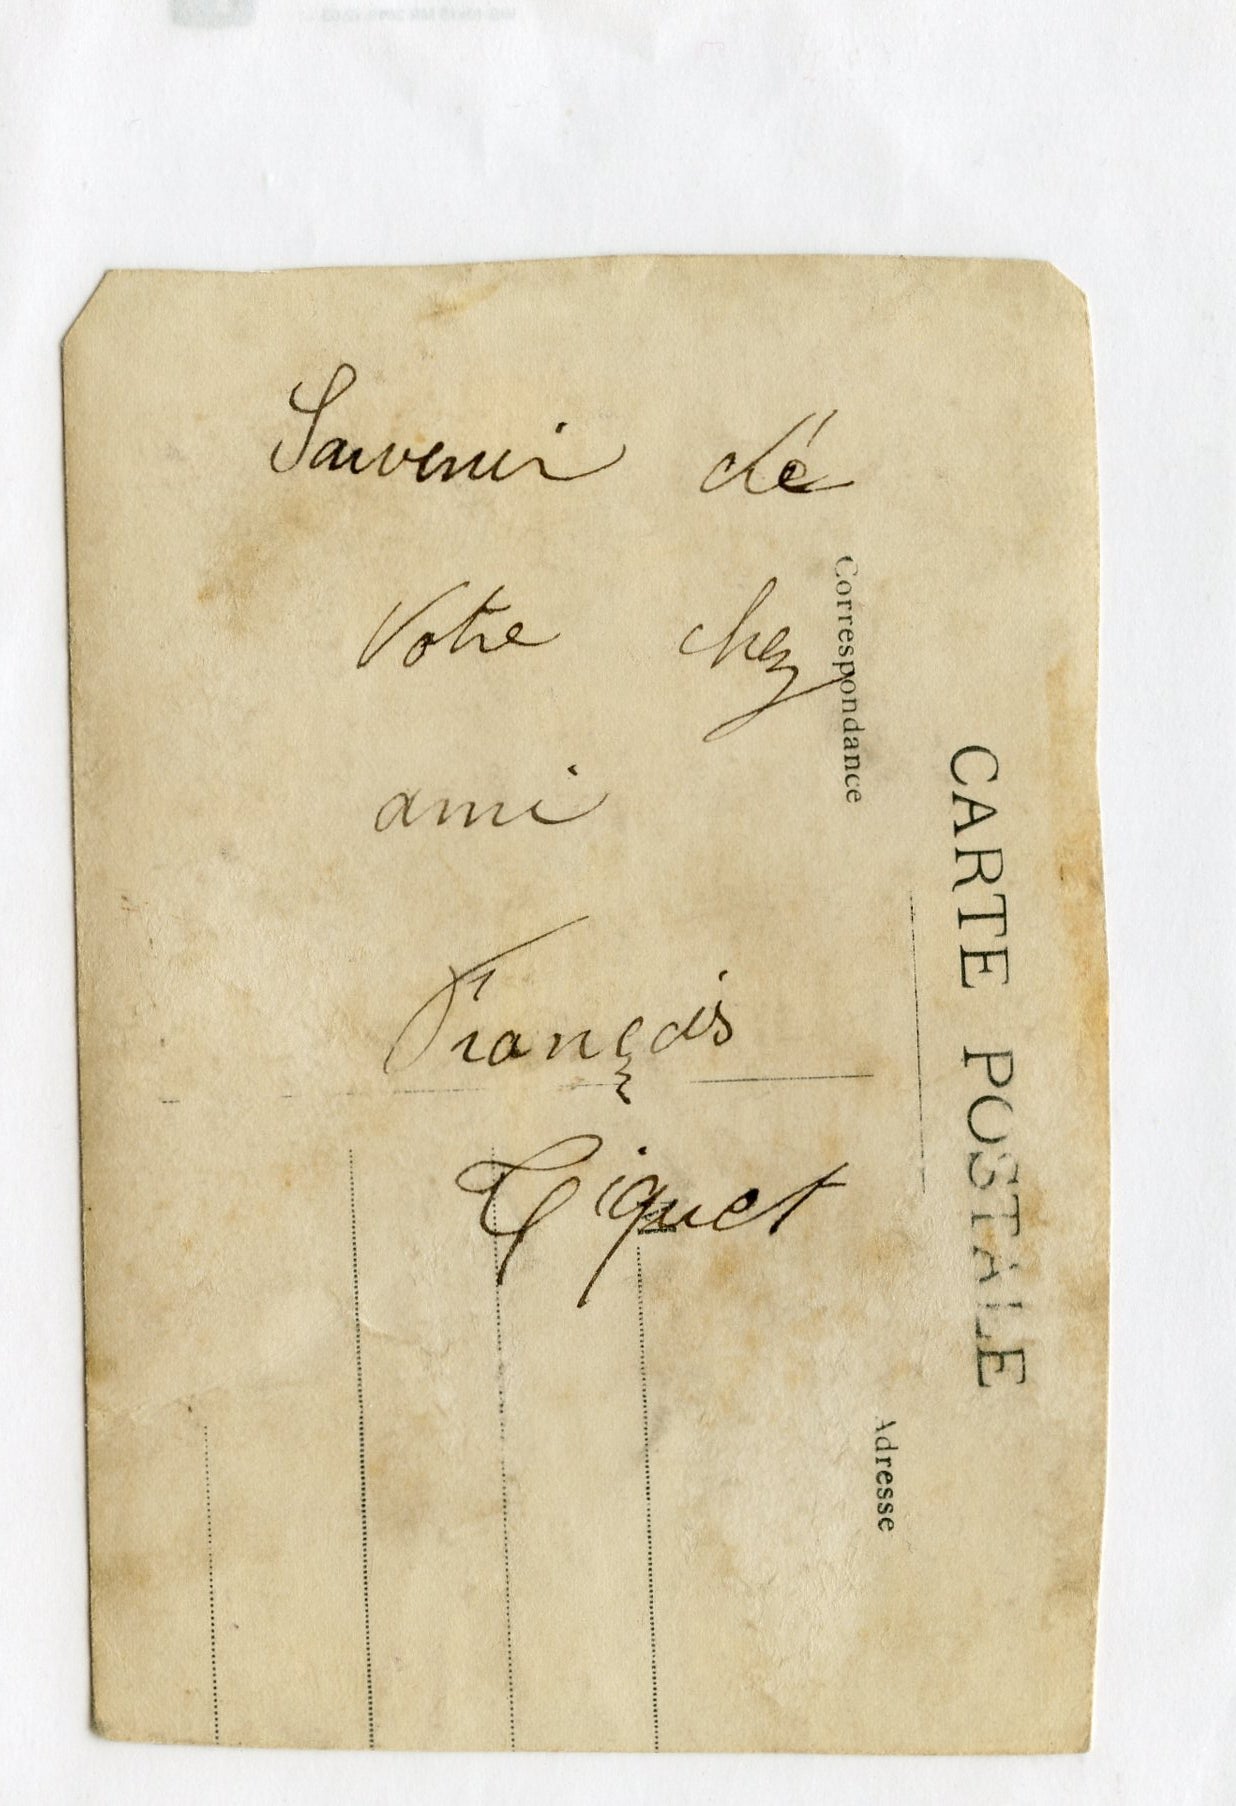 Souvenir dé
Votre cher
ami
François
Tiquet
CARTE POSTALE
Correspondance
Adresse